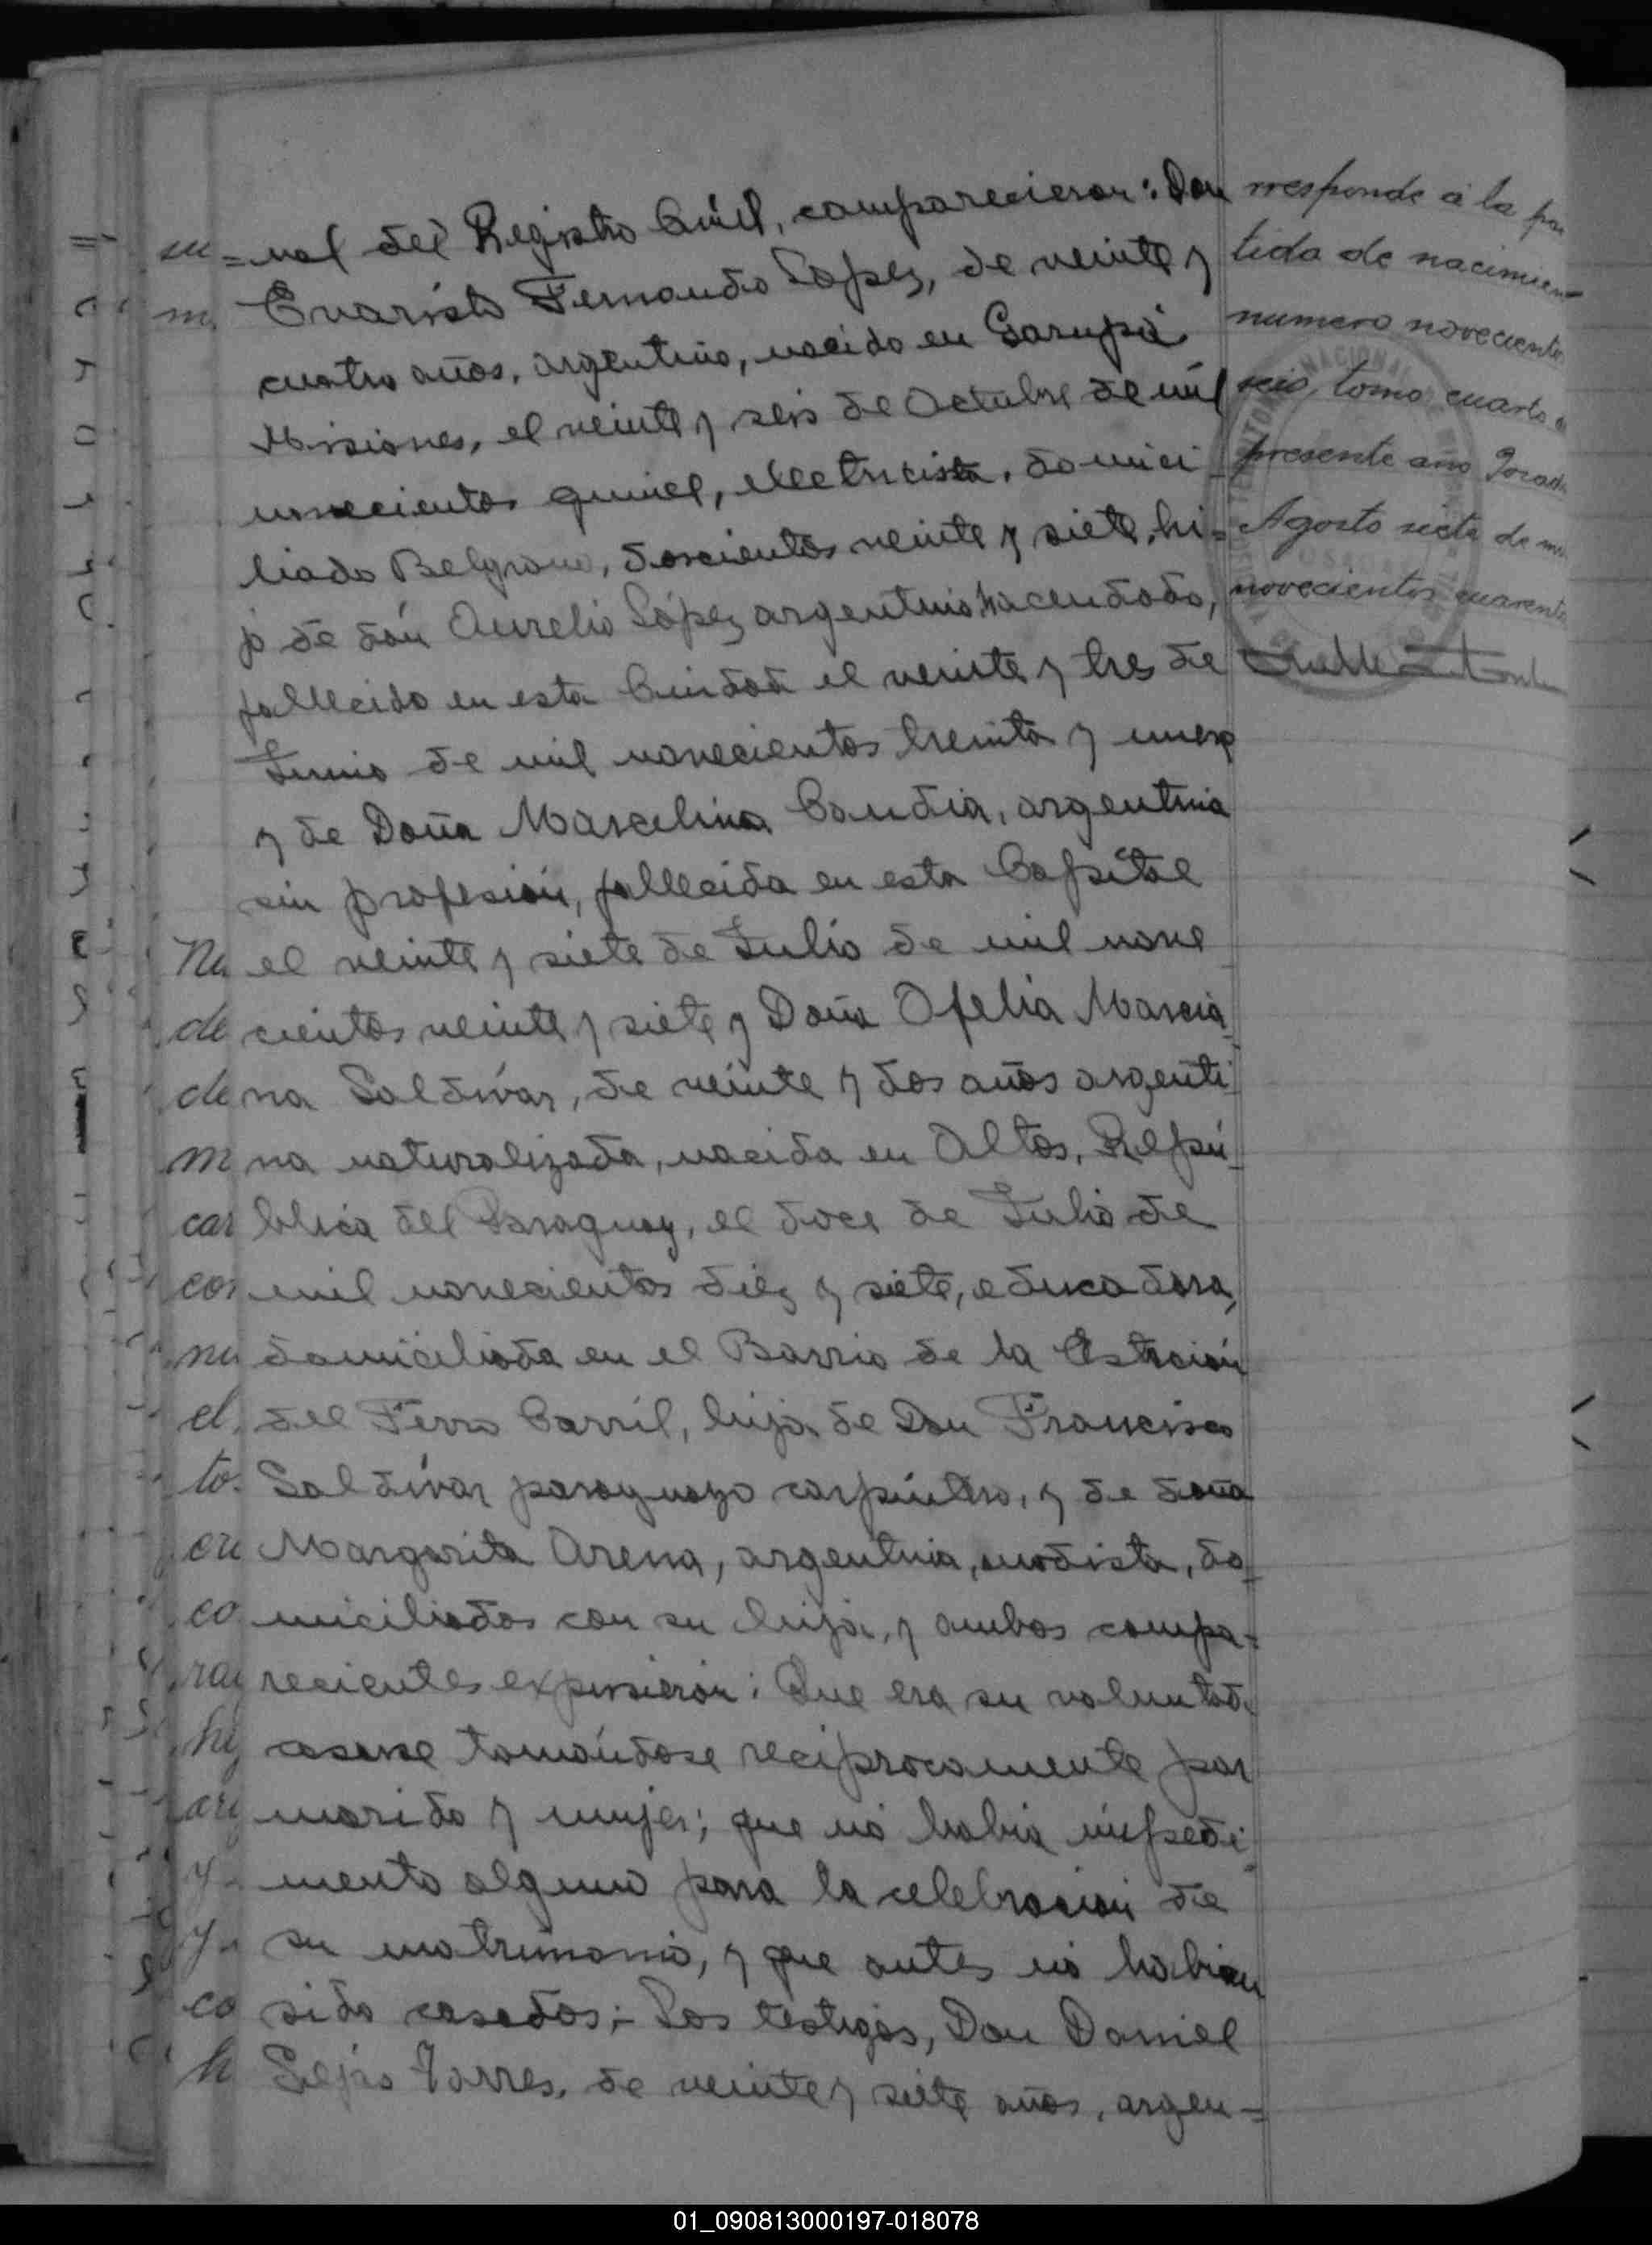 nal del Registro Civil, comparecieron: Don
Evaristo Fernando López, de veinte y
cuatro años, argentino, nacido en Garupá
Misiones, el veinte y seis de Octubre de mil
novecientos quince, electricista, domici-
liado Belgrano, doscientos veinte y siete, hi=
jo de dón Aurelio López argentino hacendado,
fallecido en esta Ciudad el veinte y tres de
Junio de mil novecientos treinta y
y de Doña Marcelina Candia, argentina
sin profesión, fallecida en esta Capital
el veinte y siete de Julio de mil nove
cientos veinte y siete y Doña Ofelia Marcia
na Saldívar, de veinte y dos años argenti
na naturalizada, nacida en Altos, Repú
blica del Paraguay, el doce de Julio de
mil novecientos diez y siete, educadora,
domiciliada en el Barrio de la Estación
del Ferro Carril, hija de Don Francisco
Saldívar paraguayo carpintero, y de doña
Margarita Arena, argentina, modista, do
miciliados con su hija, y ambos compa-
recientes expusieron: Que era su voluntad
casarse tomándose reciprocamente por
marido y mujer; que nó habia impedi
mento alguno para la celebración de
su matrimonio, y que antes nó habian
sido casados;- Los testigos, Don Daniel
Torres, de veinte y siete años, argen-
rresponde á la par
tida de nacimien
numero novecientos
seis, tomo cuarto
presente año
Agosto siete de mil
novecientos cuarenta
01_090813000197-018078